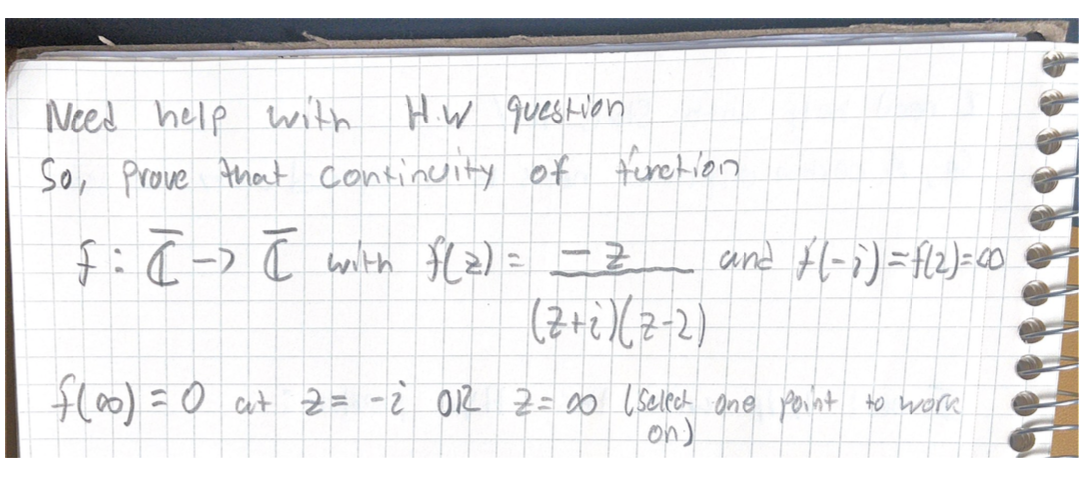 Need help with H.W question
So, prove that continuity of function
f : ℂ̅ -> ℂ̅ with f(z) = -z / (z+i)(z-2) and f(-i)=f(2)=∞
f(∞) = 0 at z = -i OR z = ∞ (select one point to work on)